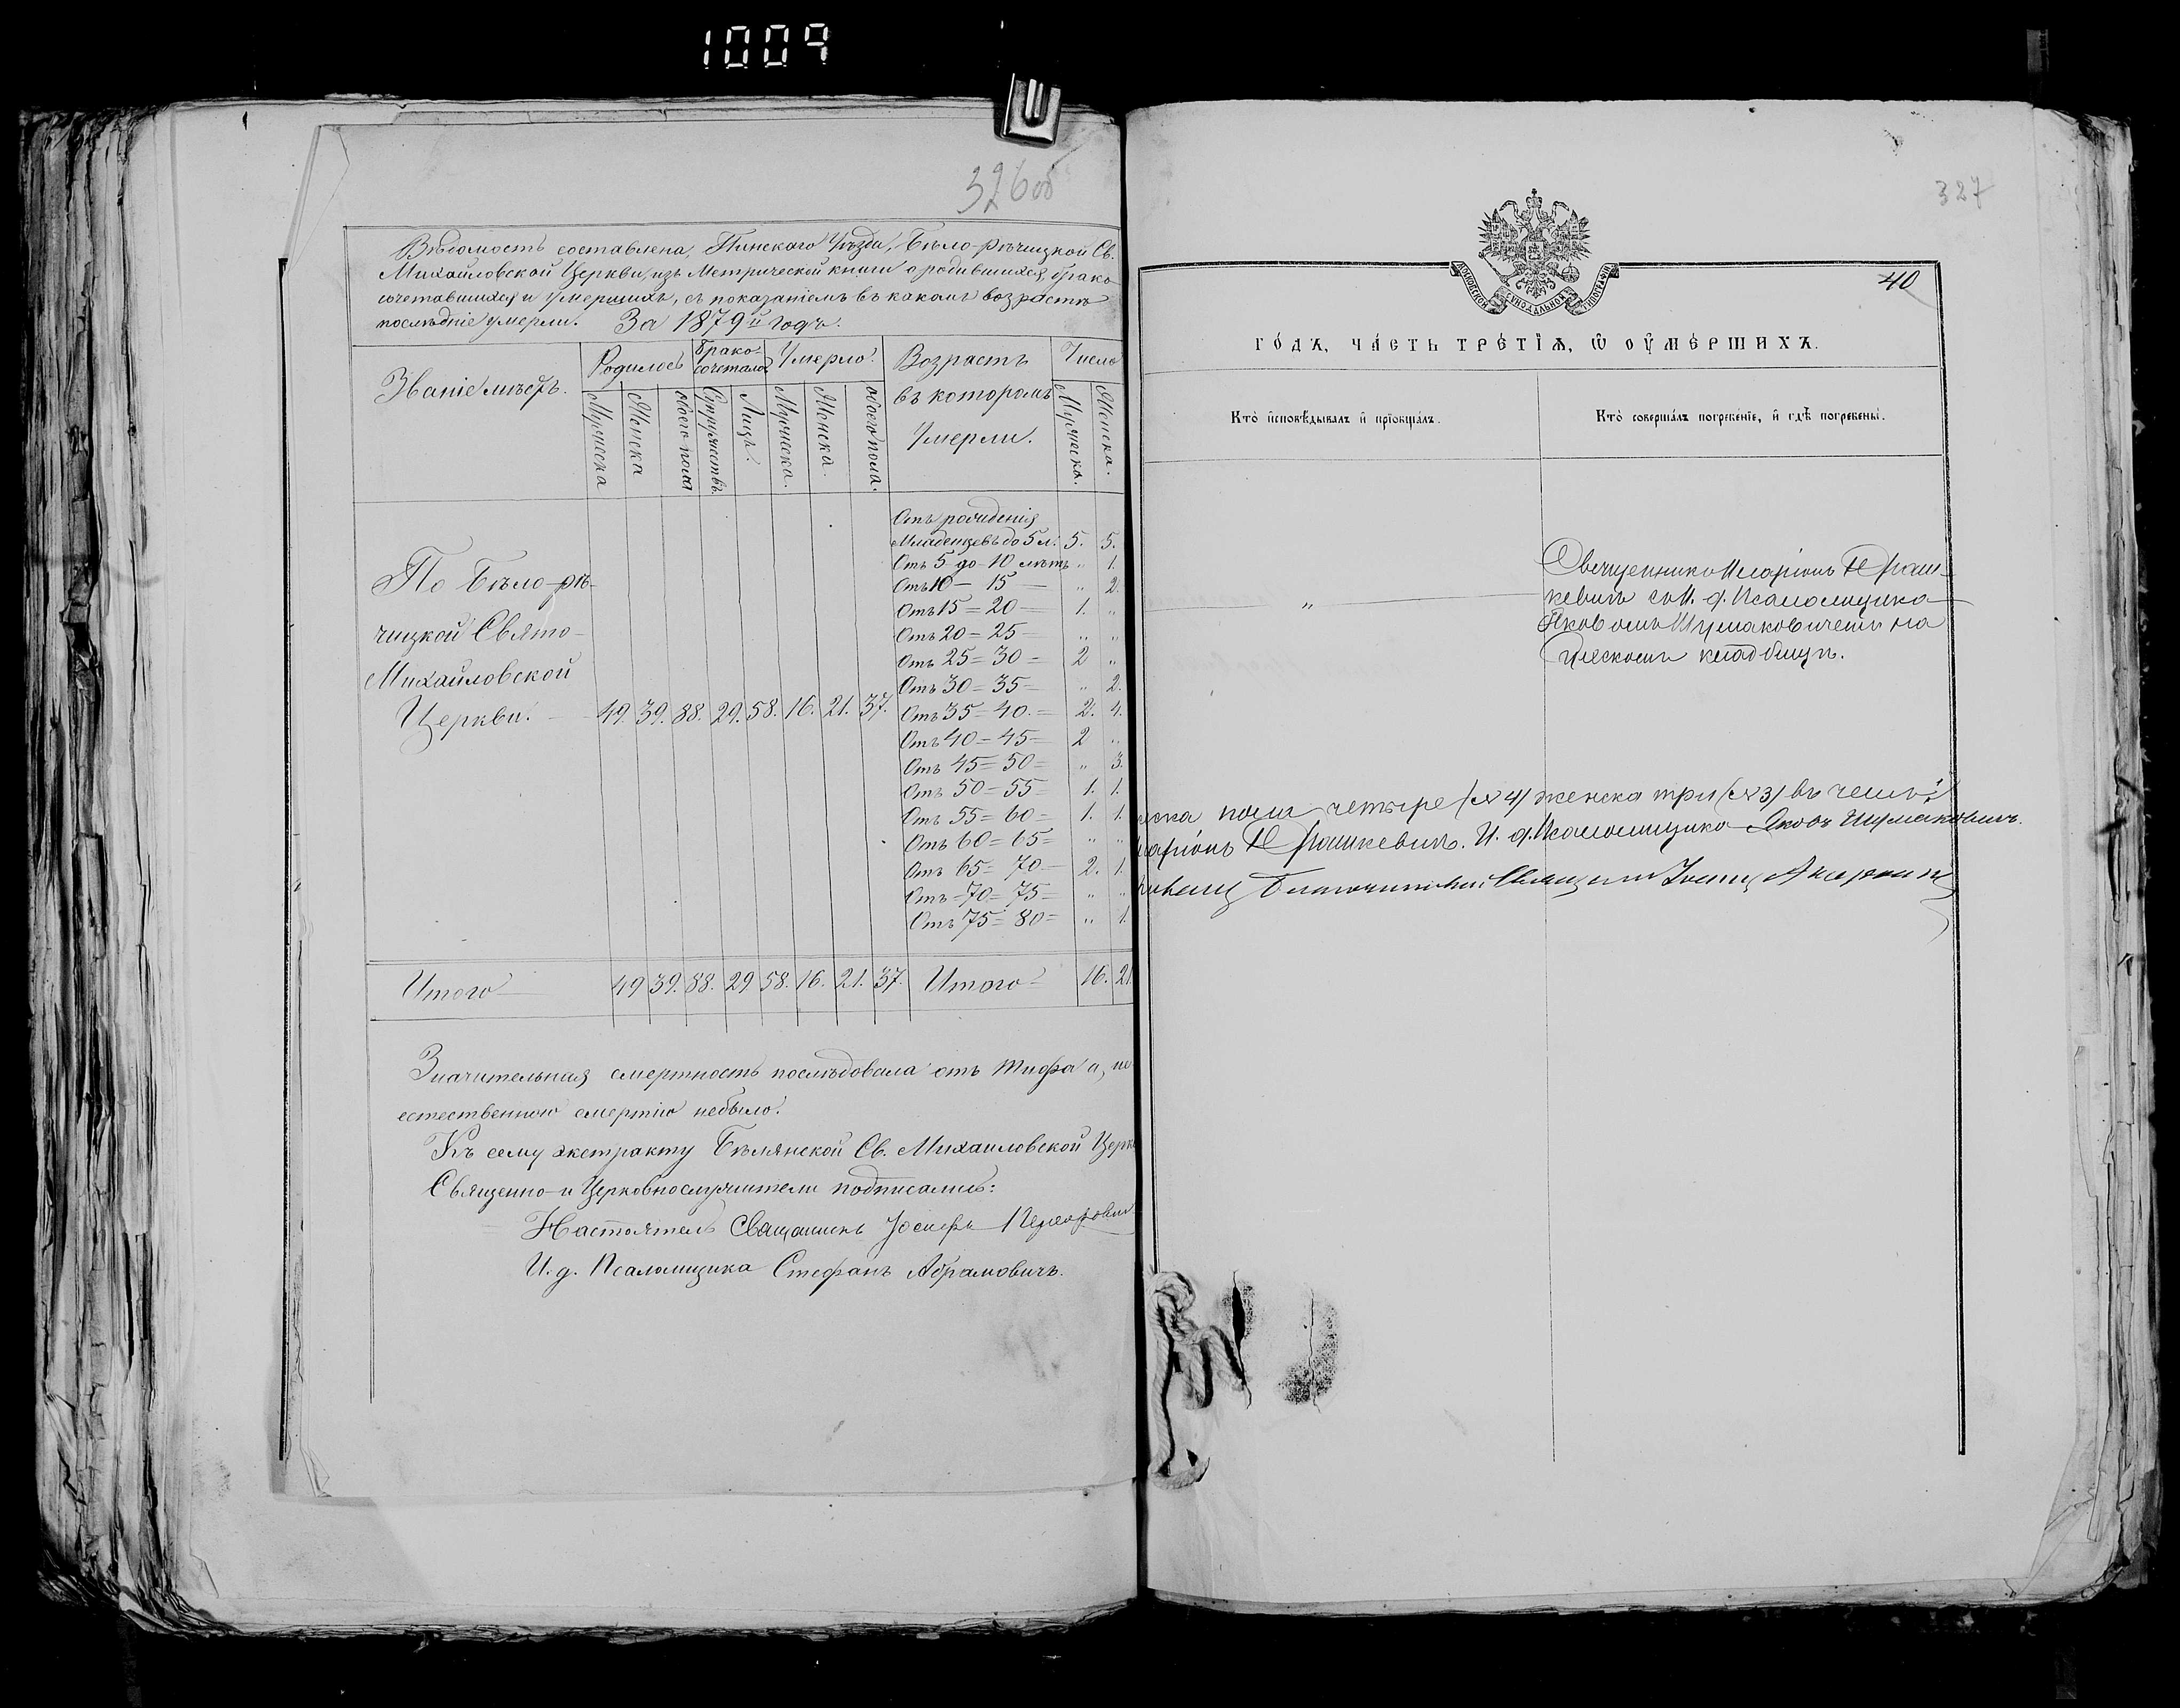 1009
326об
Вѣдомость составлена, Пинскаго Уѣзда, Бѣло-рѣчицкой Св.
Михайловской Церкви, изъ Метрической книги о родившихся, брако
сочетавшихся и умершихъ, съ показаніемъ въ какомъ возрастѣ
послѣдніе умерли. За 1879й годъ.
Званіе мѣстъ. Родилось Брако-сочеталос Умерло. Возрастъ въ которомъ Умерли. Число
Мужеска Женска обоего пола Супружествъ Лицъ. Мужеска. Женска. обоего пола. Мужеска. Женска.
По Бѣло-рѣ-
чицкой Свято-
Михайловской
Церкви. 49. 39. 88. 29. 58. 16. 21. 37.
Отъ рожденія
Младенцевъ до 5 л. 5. 5.
Отъ 5 до 10 лѣтъ „ 1.
Отъ 10 — 15 — „ 2.
Отъ 15 = 20 — 1. „
Отъ 20 = 25 — „ „
Отъ 25 = 30 = 2 „
Отъ 30 = 35 = „ 2.
Отъ 35 = 40. = 2. 4.
Отъ 40 = 45 = 2 „
Отъ 45 = 50 = „ 3.
Отъ 50 = 55 = 1. 1.
Отъ 55 = 60 = 1. 1.
Отъ 60 = 65 = „ „
Отъ 65 = 70 = 2. 1.
Отъ 70 = 75 = „ „
Отъ 75 = 80 = „ 1.
Итого 49 39. 88. 29 58. 16. 21. 37. Итого 16. 21
Значительная смертность послѣдовала отъ тифа а, не
естественною смертію небыло.
Къ сему экстракту Бѣлянской Св. Михаиловской Церк
Священно- и Церковнослужители подписались:
Настоятель Священникъ Іосифъ
И. д. Псаломщика Стефанъ Абрамовичъ.
327
МОСКОВСКОЙ СѴНОДАЛЬНОЙ ТИПОГРАФІИ
40
ГО́ДА, ЧА́СТЬ ТРЕ́ТІѦ, Ѡ ОУ҆МЕ́РШИХЪ.
Кто̀ и҆сповѣ́дывалъ и҆ прїѡбща́лъ.
Кто̀ соверша́лъ погребе́нїе, и҆ гдѣ̀ погребены̀.
„
Священникъ Иларіонъ
кевичъ съ И. д. Псаломщика
Яковомъ Шумаковичемъ на
кладбищѣ.
ска пола четыре (№ 4) женска три (№ 3) въ чемъ
ларіонъ И. д. Псаломщика Яковъ Шумаковичъ.